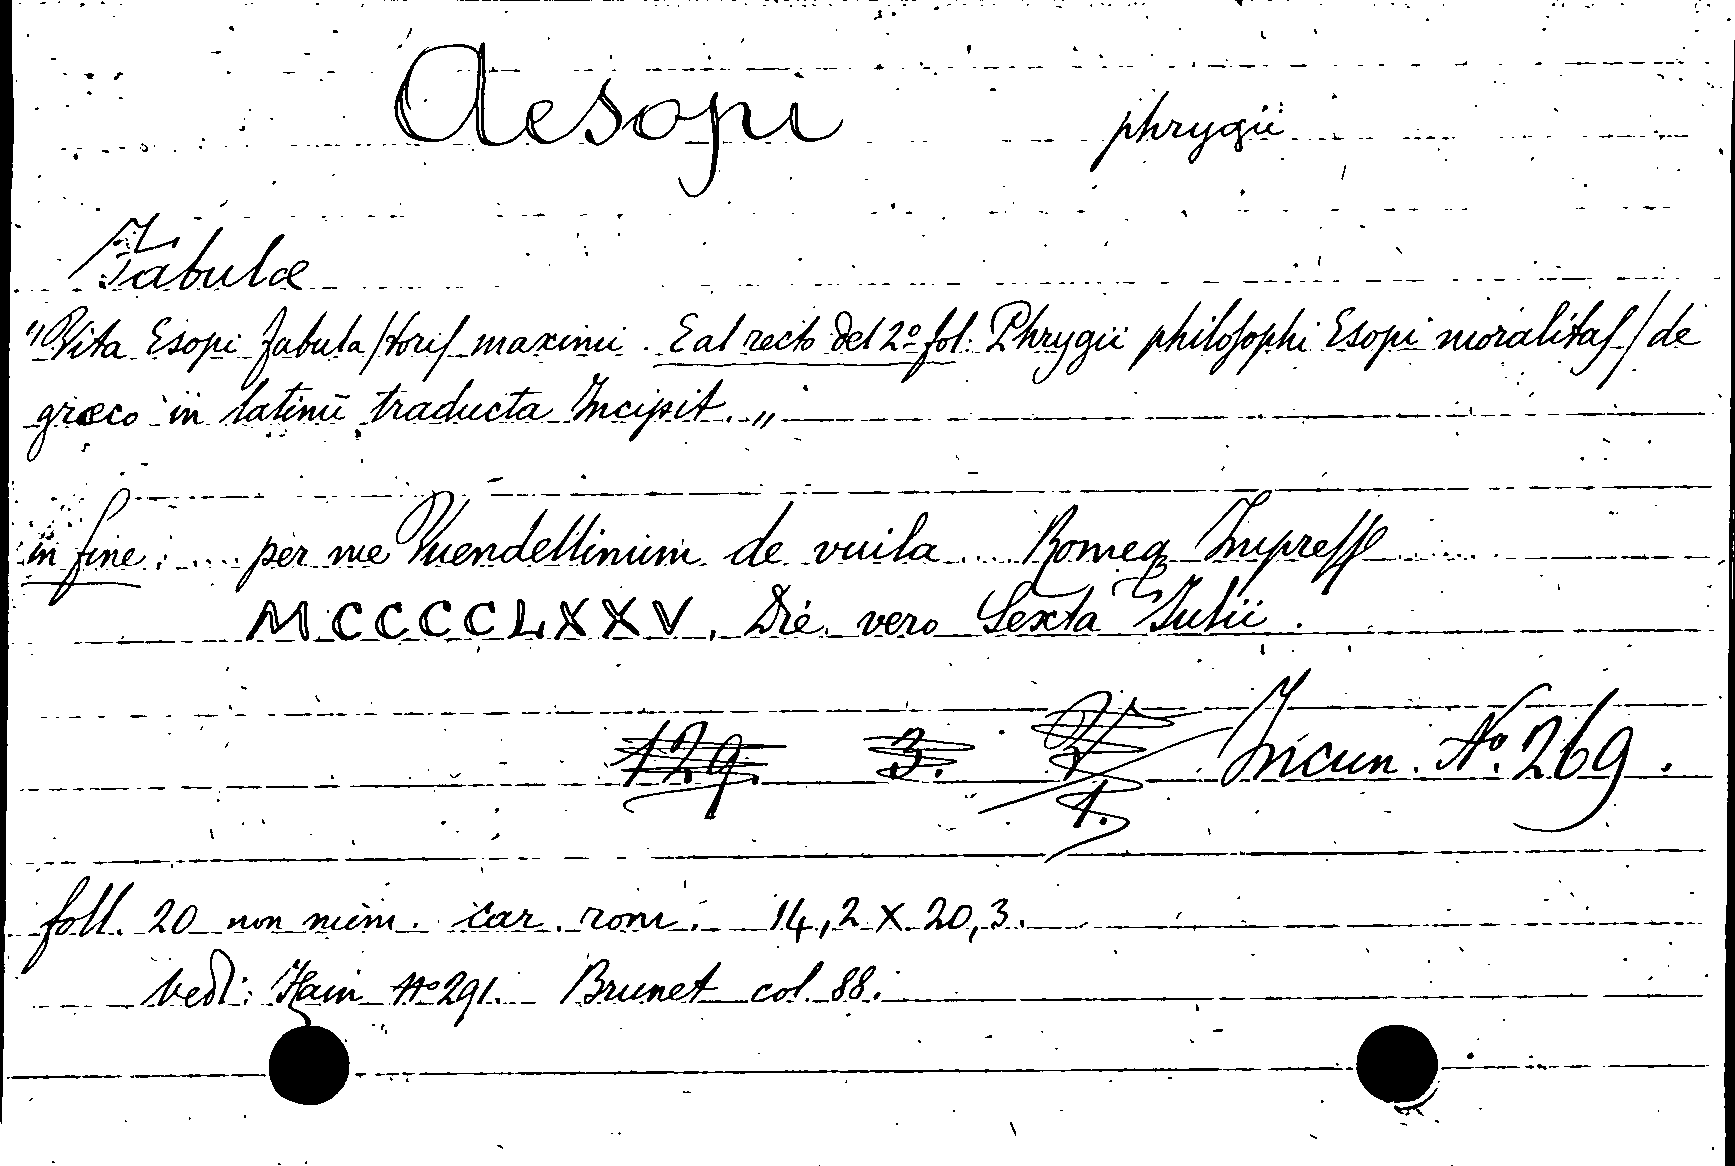 Aesopi phrygii
Fabulæ
"Vita Esopi fabula/toris maximi. E al recto del 2º fol: Phrygii philosophi Esopi moralitas/de
græco in latinū traducta Incipit."
in fine: .... per me Vuendellinum de vuila ... Romeq Impresse .....
MCCCCLXXV. Die vero Sexta Iulii.
129. 3. Incun. Nº 269.
foll. 20 non num. car. rom. 14,2 X 20,3.
vedi: Hain Nº 291. Brunet col. 88.